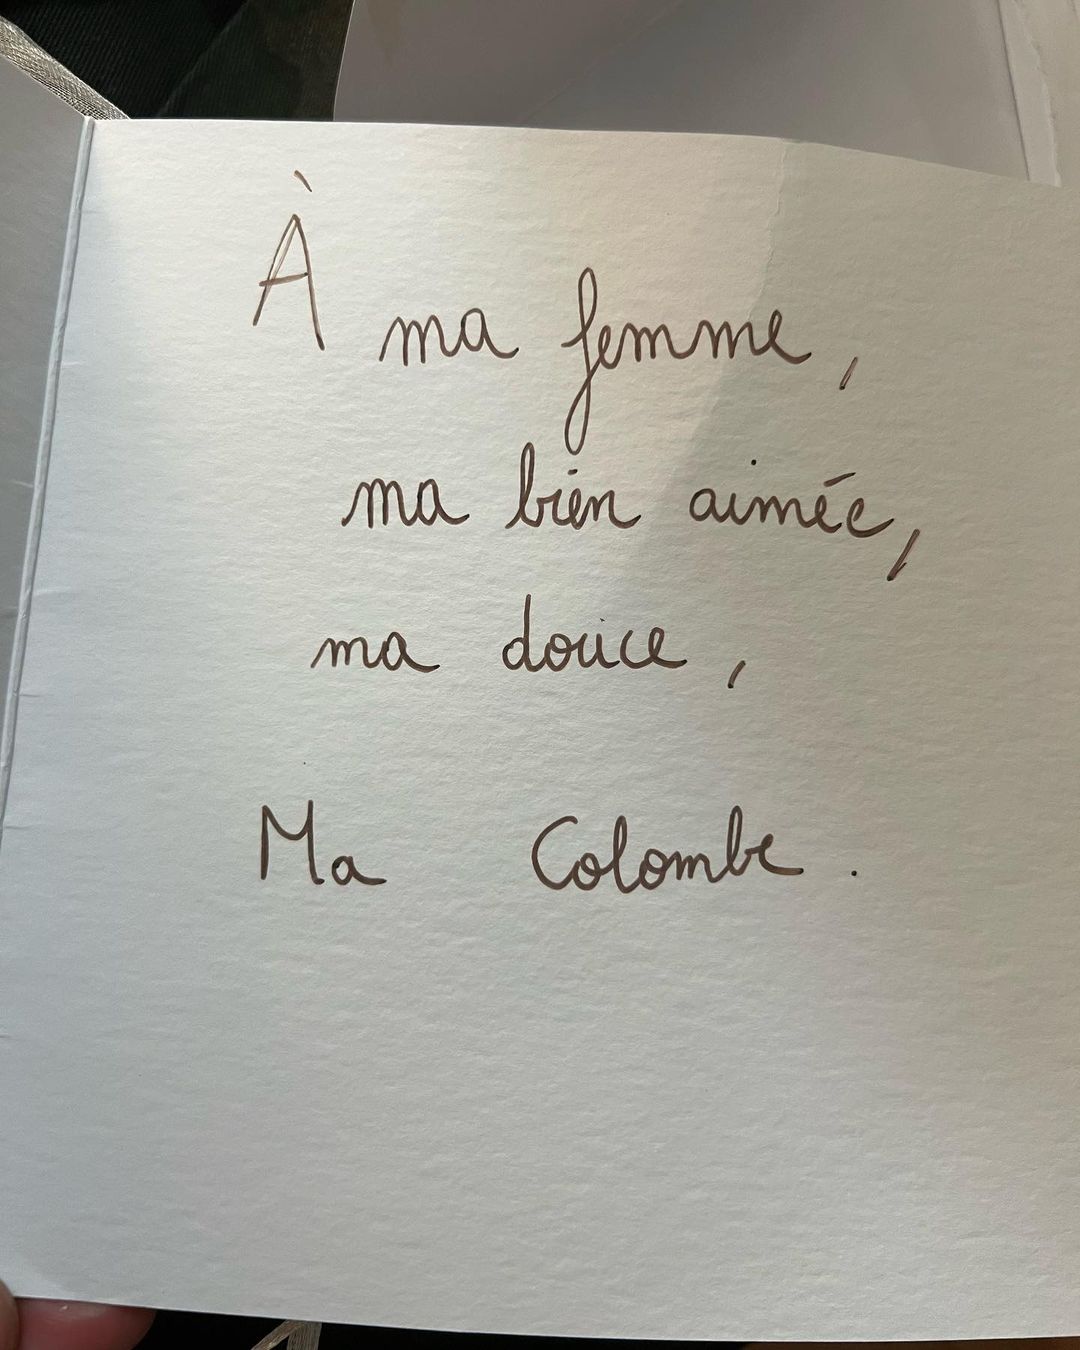 À ma femme,
ma bien aimée,
ma douce,
Ma Colombe.